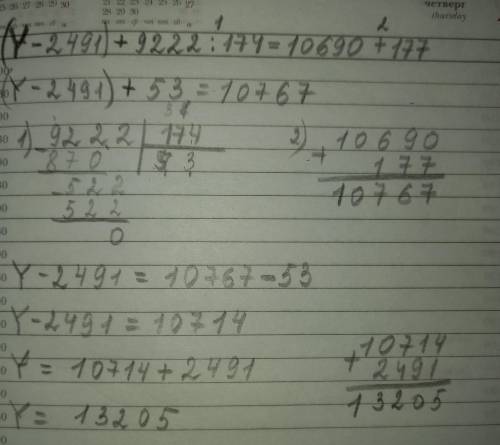 четверг
thursday
1 2
(Y - 2491) + 9222 : 174 = 10690 + 177
(Y - 2491) + 53 = 10767
1) 9222 | 174
- 870 | 53
- 522
522
0
2) 10690
+ 177
10767
Y - 2491 = 10767 - 53
Y - 2491 = 10714
Y = 10714 + 2491
Y = 13205
10714
+ 2491
13205